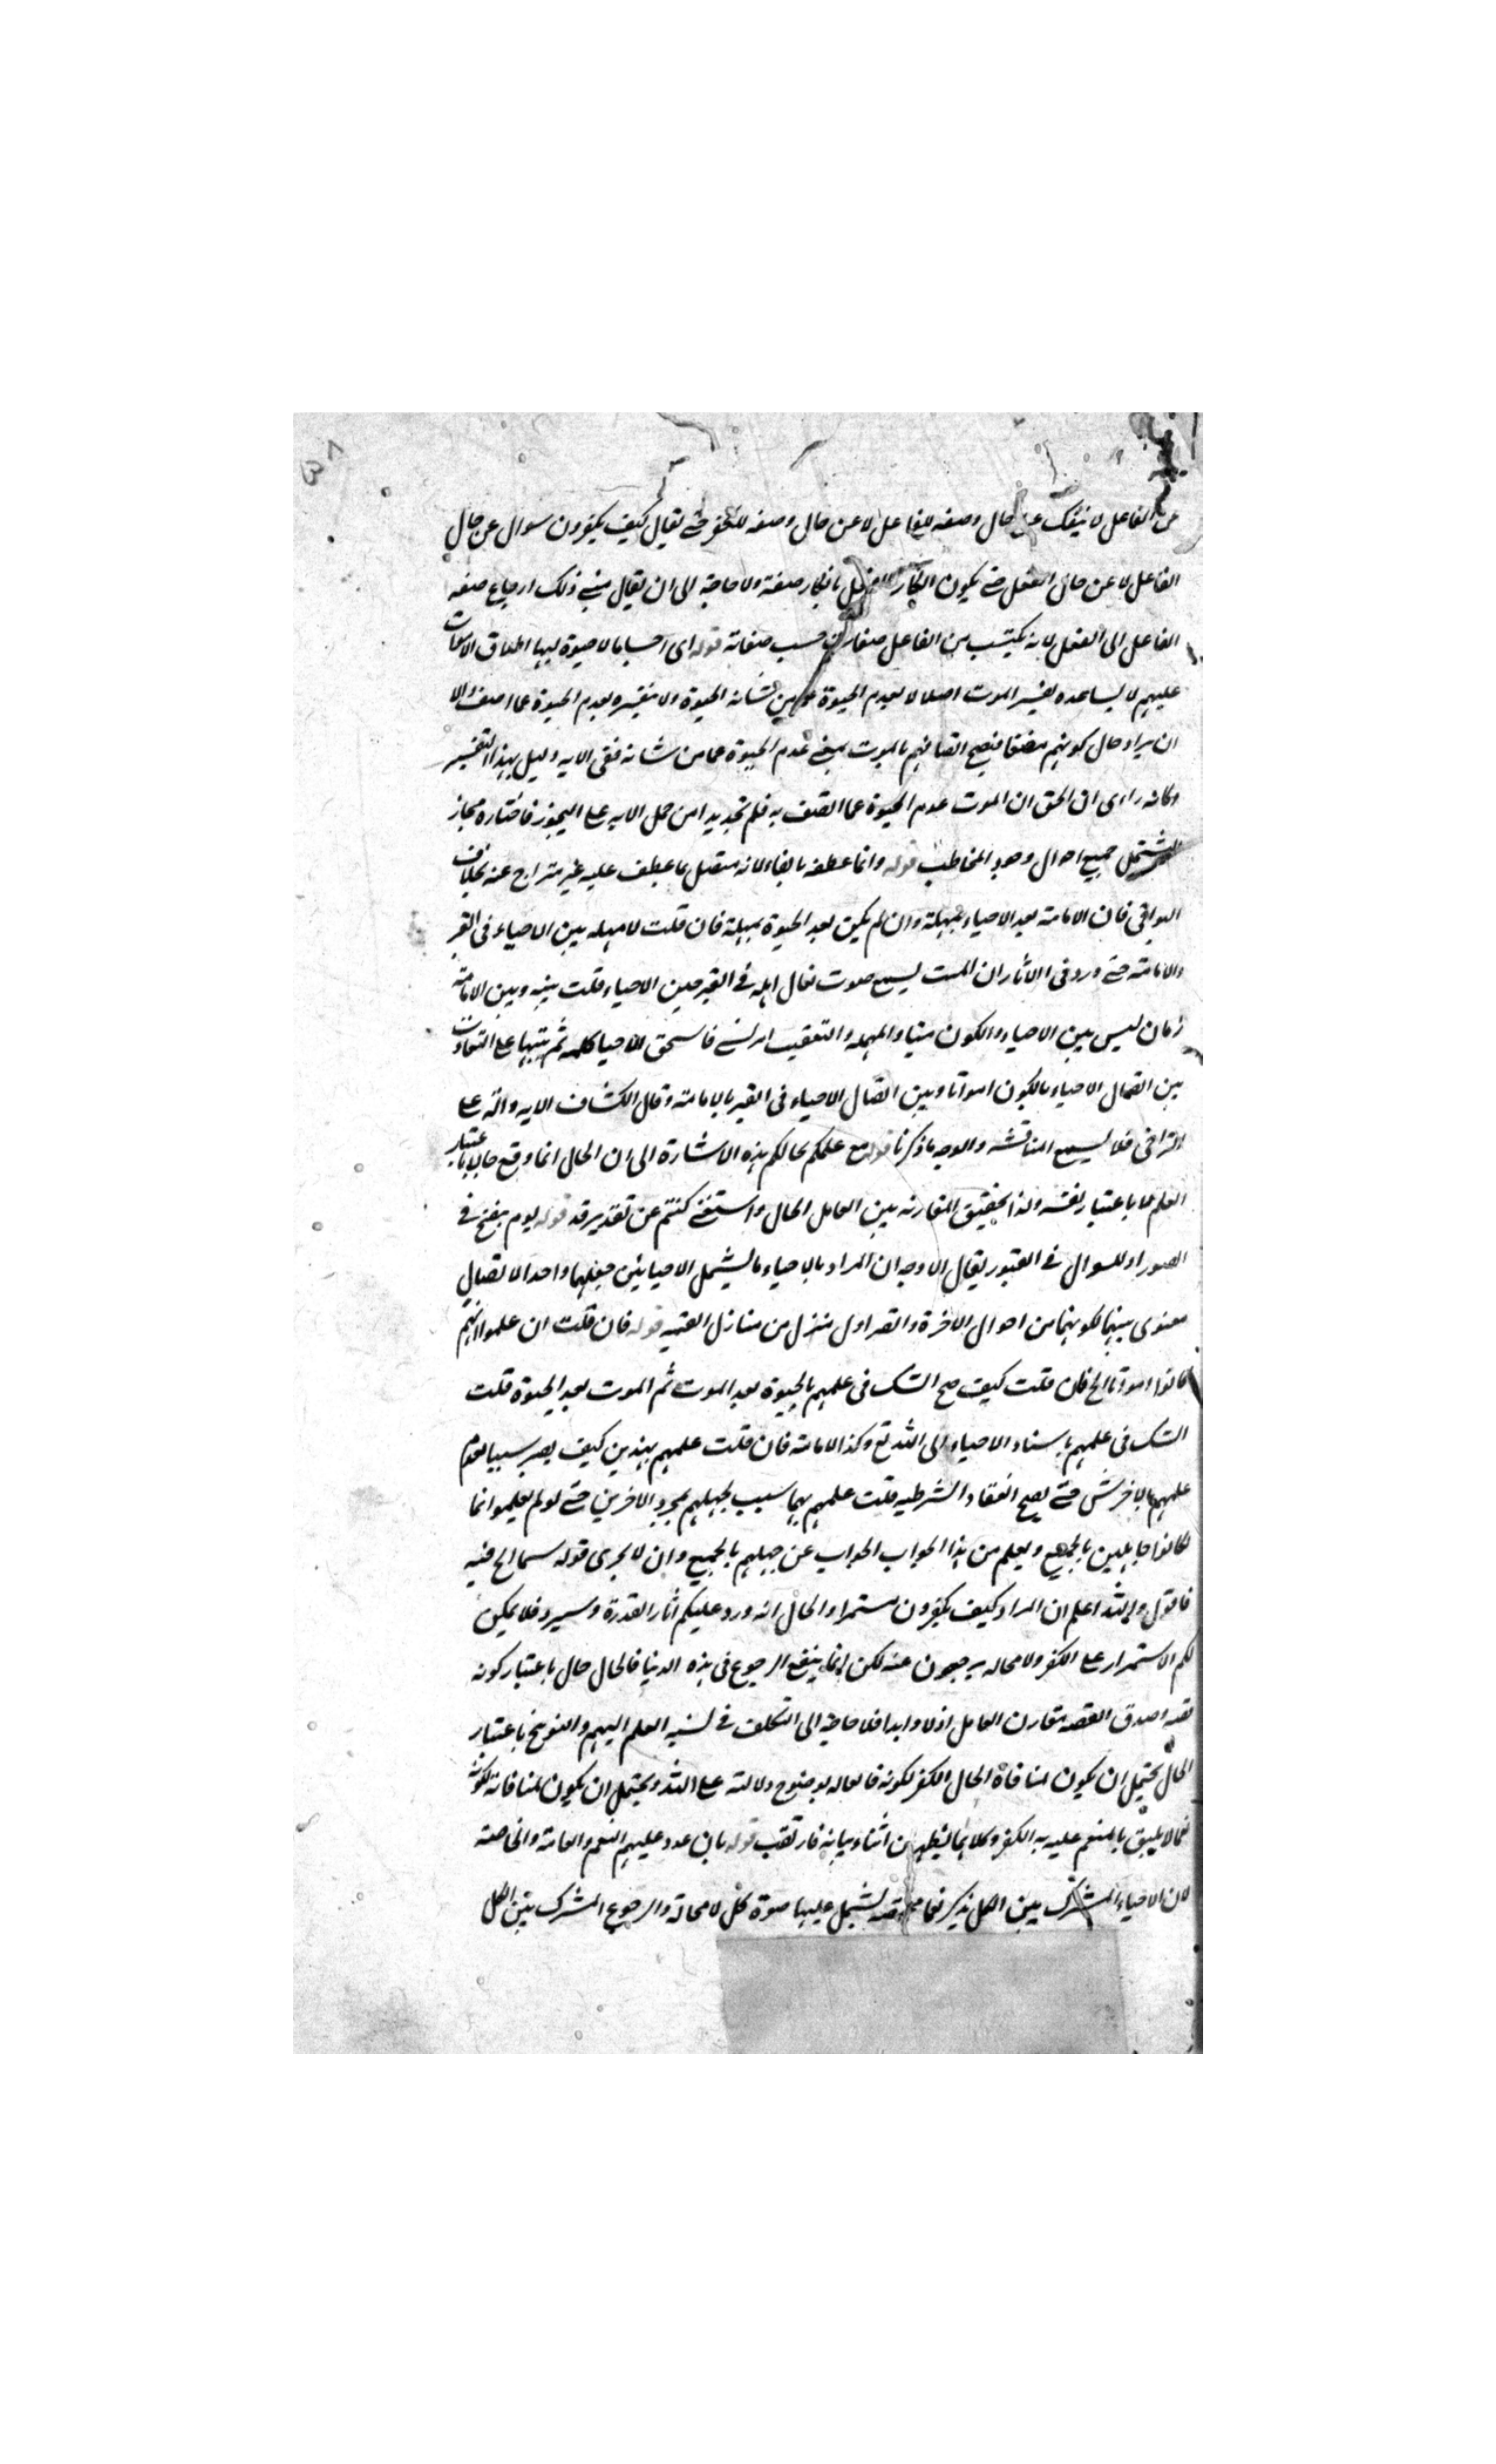 عن الفاعل لا ينفك عن حال وصفه للفاعل لا عن حال وصفه للكفر حتى يقال كيف يكفرون سوال عن حال
الفاعل لا عن حال الفعل حتى يكون انكار بانكار صفة ولا حاجة الى ان يقال مبنى ذلك ارجاع صفه
الفاعل الى الفعل لانه يكتسب من الفاعل صفات حسب صفاته قوله اى اجساما لا حيوة لها اطلاق الاموات
عليهم لا يساعده تفسير الموت اصلا لا بعدم الحيوة عما من شانه الحيوة ولا تفسيره بعدم الحيوة عما اتصف الا
ان يراد حال كونهم مضغا فيصح اتصافهم بالموت بمعنى عدم الحيوة عما من شانه ففى الايه دليل بهذا التفسير
وكانه راى ان الحق ان الموت عدم الحيوة عما اتصف به فلم تجد بدا من حمل الايه على التجوز فاختاره مجاز
ليشتمل جميع احوال وجود المخاطب قوله وانما عطفه بالفاء لانه متصل بما عطف عليه غير متراخ عنه بخلاف
البواقى فان الاماتة بعد الاحياء بمهلة وان لم يكن بعد الحيوة بمهلة فان قلت لا مهلة بين الاحياء فى القبر
والاماتة حتى ورد فى الاثار ان الميت يسمع صوت نعال اهله فى القبر حين الاحياء قلت بينه وبين الاماتة
زمان ليس بين الاحياء والكون ميتا والمهلة والتعقيب امر نسبى فاستحق الاحيا كلمة ثم تنبيها على التفاوت
بين اتصال الاحياء بالكون امواتا وبين اتصال الاحياء فى القبر بالاماتة وقال الكشاف الايه دالة على
التراخى فلا يسمع المناقشه والوجه ما ذكرنا قوله مع علمكم بحالكم هذه الاشارة الى ان الحال انما وقع حالا باعتبار
العلم لا باعتبار نفسه ولذا تحقيق المقارنه بين العامل والحال واستغنى كنتم عن تقدير قد قوله يوم ينفخ فى
الصور او للسوال فى القبور يقال الاوجه ان المراد بالاحياء ما يشمل الاحيائين جعلهما واحدا لاتصال
معنوى بينهما لكونهما من احوال الاخرة والقبر اول منزل من منازل العقبى قوله فان قلت ان علموا انهم
كانوا امواتا الخ فان قلت كيف صح الشك فى علمهم بالحيوة بعد الموت ثم الموت بعد الحيوة قلت
الشك فى علمهم باسناد الاحياء الى الله تع وكذا الاماتة فان قلت علمهم بهذين كيف يصير سببا لعدم
علمهم بالاخرين حتى يصح انعقاد الشرطيه قلت علمهم بهما سبب لجهلهم بمجرد الاخرين حتى لو لم يعلموا انما
لكانوا جاهلين بالجميع ويعلم من هذا الجواب الجواب عن جهلهم بالجميع وان لا يجرى قوله سيما الخ فيه
فاقول والله اعلم ان المراد كيف يكفرون مستمرا والحال انه ورد عليكم اثار القدرة وسيرد فلا يمكن
لكم الاستمرار على الكفر ولا محاله يرجعون عنه لكن انما ينفع الرجوع فى هذه الدنيا فالحال حال باعتبار كونه
قصه اصدق القصه مقارن العامل ازلا وابدا فلا حاجة الى التكلف فى نسبه العلم اليهم والتوبيخ باعتبار
الحال يحتمل ان يكون لمنافاة الحال الكفر لكونه فا لعاله بوضوح دلالته على الله ويحتمل ان يكون لمنافاته لكونه
نعما لا يليق بالمنعم عليه به الكفر وكلاهما ليظهر من اثناء بيانه فارتقب قوله بان عدد عليهم النعم العامة والخاصة
لان الاحياء المشترك بين الكل يشمل عليها صوة كل لا محالة والرجوع المشترك بين الكل